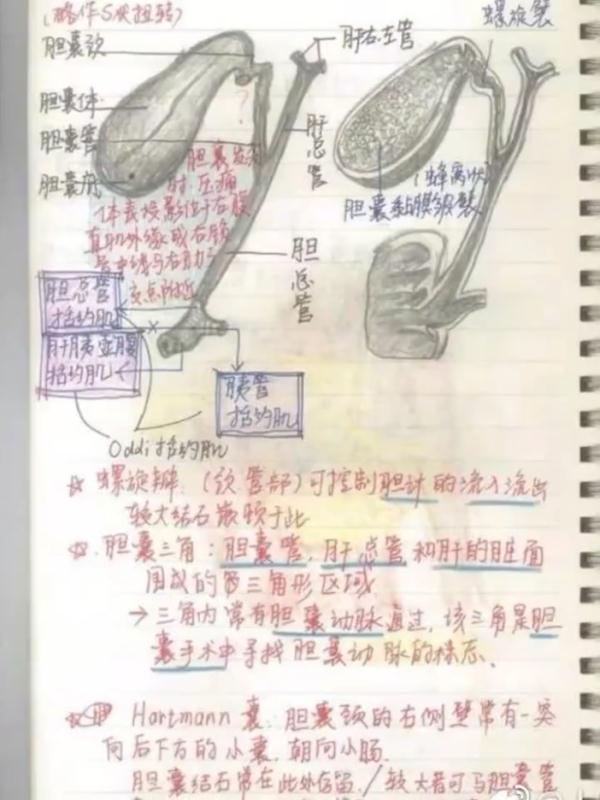 (略作S状扭转)
螺旋襞
胆囊颈
肝右.左管
胆囊体
胆囊管
胆囊底
肝总管
胆囊发炎
时,压痛
体表投影位于右腹
直肌外缘或右
中线与右肋
交点附近
(蜂窝状)
胆囊黏膜皱襞
胆总管
胆总管
括约肌
肝胰壶腹
括约肌
胰管
括约肌
Oddi括约肌
☆ 螺旋瓣:(颈管部)可控制胆汁的流入流出
较大结石嵌顿于此
☆.胆囊三角:胆囊管,肝总管和肝的脏面
围成的三角形区域
→ 三角内常有胆囊动脉通过,该三角是胆
囊手术中寻找胆囊动脉的标志.
☆ Hartmann囊:胆囊颈的右侧壁常有一突
向后下方的小囊.朝向小肠.
胆囊结石常在此处存留./较大者可与胆囊管